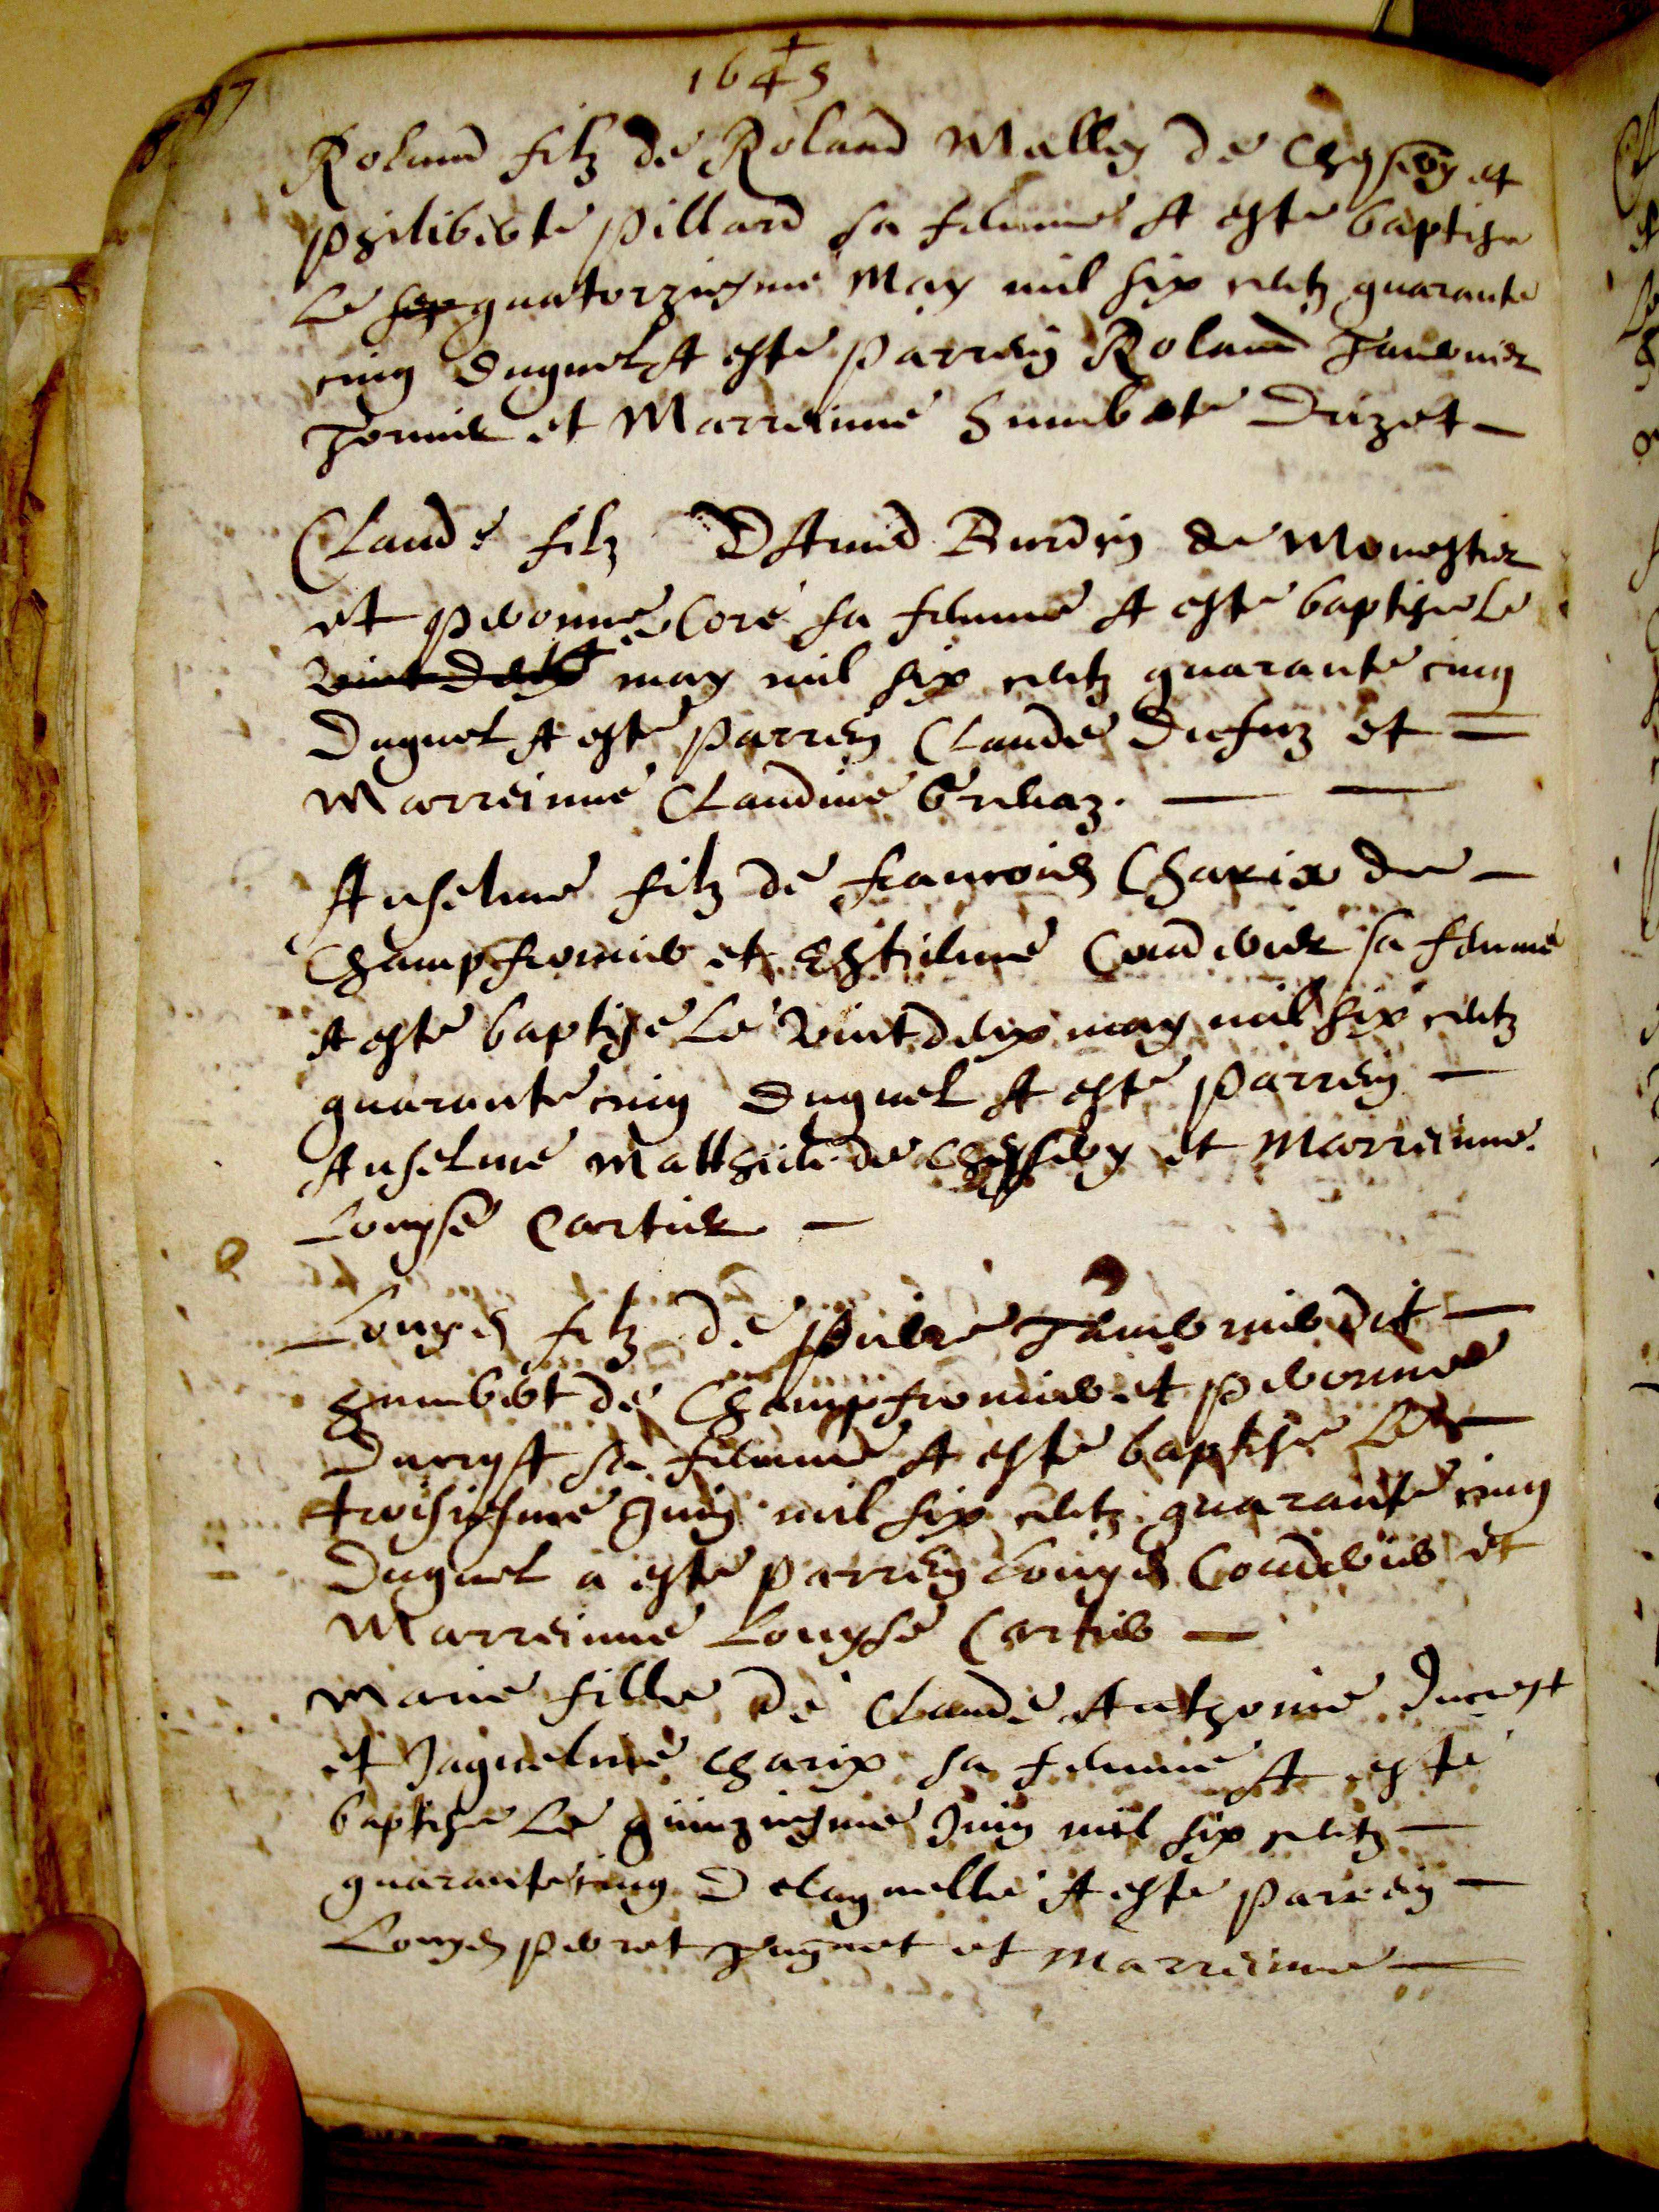 1645
97
Roland filz de Roland Malley de Chesery et
philiberte pillard sa femme A este baptise
Le quatorziesme May mil six centz quarante
cinq Duquel A este parrein Roland Tavernier
Tornier et Marreinne humberte Ducret
Claude filz D Amed Burdin de Monestier
et pernonne Coré sa femme A este baptise Le
may mil six centz quarante cinq
Duquel A este parrein Claude Ducruz et
Marreinne Claudine
Anselme filz de francois Charix de
Champfromier et Estienne Coudurier sa femme
A este baptise Le vint deux may mil six centz
quarante cinq Duquel A este parrein
Anselme Matthieu de Chesery et Marreinne
Louyse Cartier
Louys filz de pierre Tavernier dit
humbert de Champfromier et pernonne
Ducrest sa femme A este baptise Le
troisiesme Juin mil six centz quarante cinq
Duquel a este parrein Louys Coudurier et
Marreinne Louyse Cartier
Marie fille de Claude Anthoine Ducrest
et Jaquelme Charix sa femme A este
baptise Le quinziesme Juin mil six centz
quarante cinq Delaquelle A este parrein
Louys et Marreinne